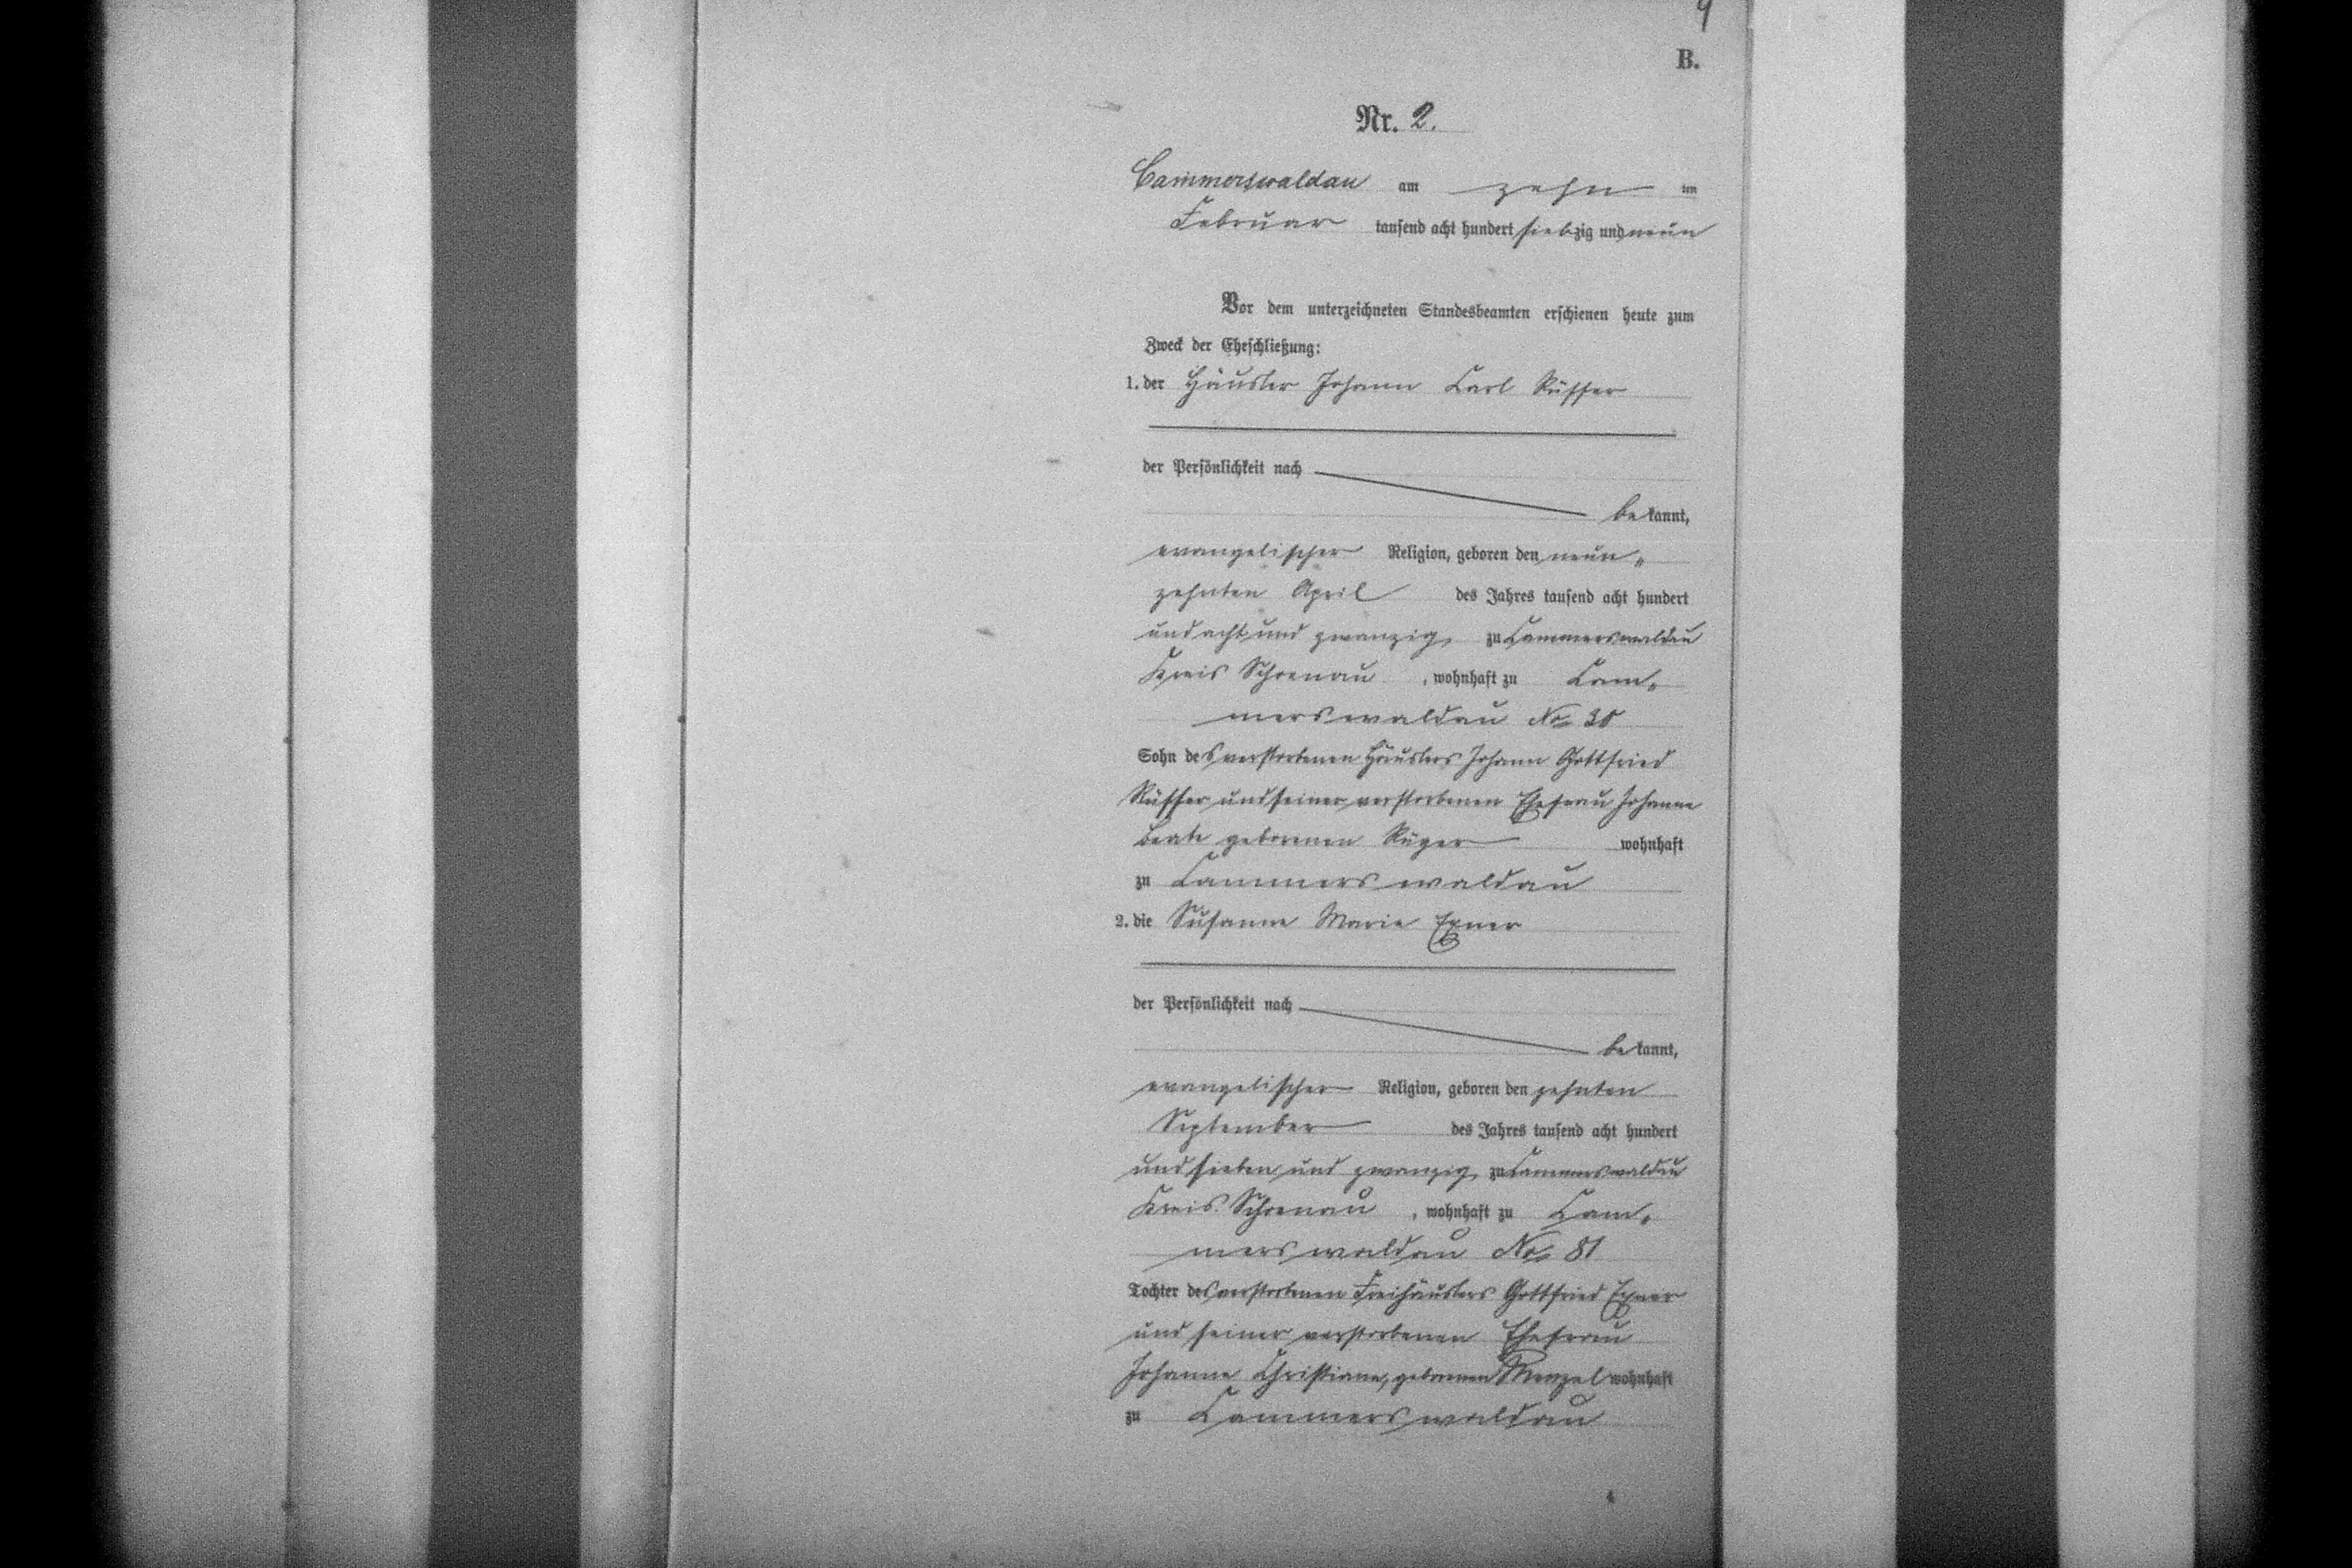 4
B.
Nr. 2.
Cammerswaldau am zehn ten
Februar tausend acht hundert siebzig und neun
Vor dem unterzeichneten Standesbeamten erschienen heute zum
Zweck der Eheschließung:
1. der Häusler Johann Carl Rüffer
der Persönlichkeit nach
bekannt,
evangelischer Religion, geboren den neun„
zehnten April des Jahres tausend acht hundert
und acht und zwanzig zu Cammerswaldau
Kreis Schoenau, wohnhaft zu Cam„
merswaldau No 30
Sohn des verstorbenen Häuslers Johann Gottfried
Rüffer und seiner verstorbenen Ehefrau Johanne
Beate geborenen Rüger wohnhaft
zu Cammerswaldau
2. die Susanne Marie Exner
der Persönlichkeit nach
bekannt,
evangelischer Religion, geboren den zehnten
September des Jahres tausend acht hundert
und sieben und zwanzig zu Cammerswaldau
Kreis Schoenau, wohnhaft zu Cam„
merswaldau No 81
Tochter des verstorbenen Freihäuslers Gottfried Exner
und seiner verstorbenen Ehefrau
Johanne Christiane, geborenen Menzel wohnhaft
zu Cammerswaldau